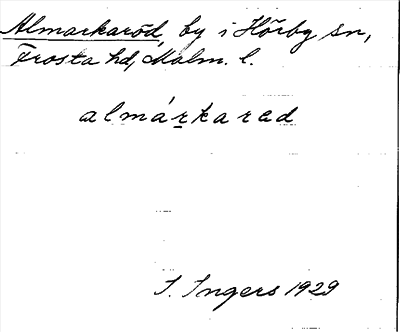 Almarkaröd, by i Hörby sn,
Frosta hd, Malm. l.
almárkarad
I. Ingers 1929